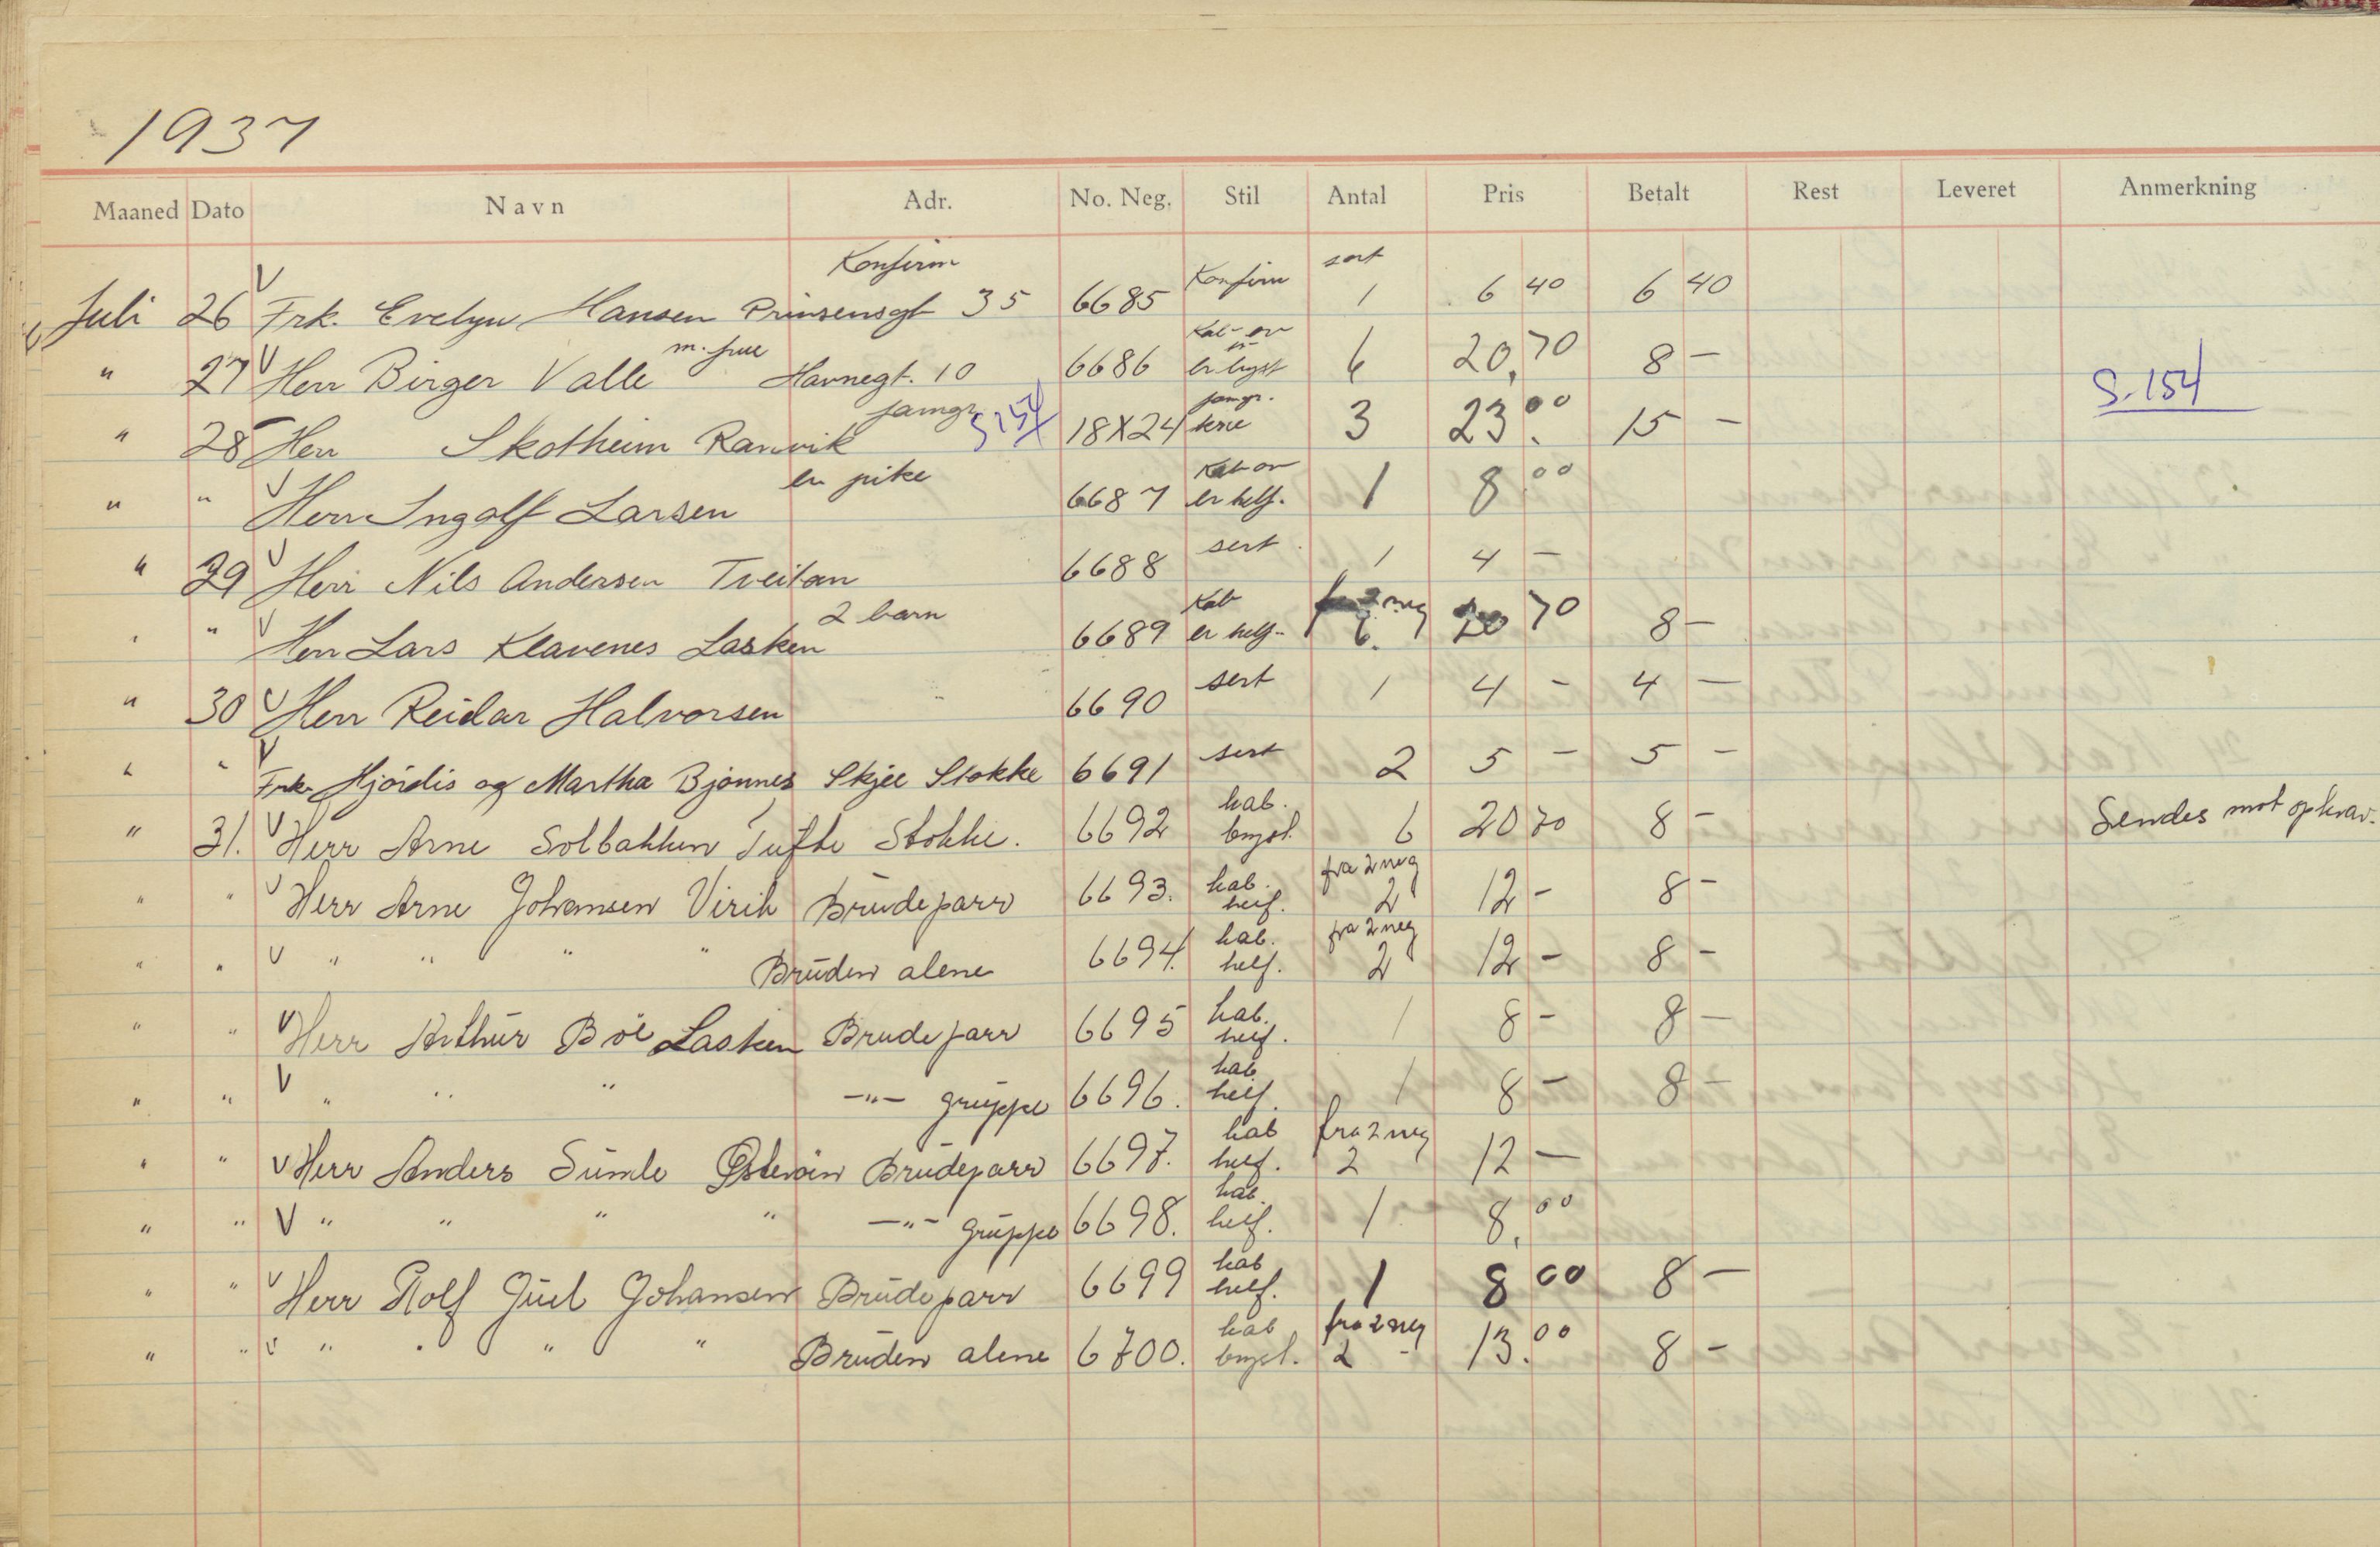 1937
Maaned Dato Navn Adr. No. Neg. Stil Antal Pris Betalt Rest Leveret Anmerkning
Konfirm sort
Juli 26 V Frk. Evelyn Hansen Prinsensgt 35 6685 Konfirm 1 6 40 6 40
m. frue Kab ov
" 27 V Herr Birger Valle Havnegt. 10 6686 6 20,70 8 - S. 154
famgr S 154 famgr.
" 28 Herr Skotheim Ranvik 18X24 3 23.00 15 -
en pike Kab ov
" " V Herr Ingolf Larsen 6687 er helf. 1 8 00
" 29 V Herr Nils Andersen Tveitan 6688 sert 1 4 -
2 barn Kab fra 2 neg
" " V Herr Lars Klavenes Lasken 6689 er helf- 6. 20 70 8 -
" 30 V Herr Reidar Halvorsen 6690 sert 1 4 - 4 -
" " V Frk. Hjördis og Martha Bjönnes Skjee Stokke 6691 sert 2 5 - 5 -
" 31. V Herr Arne Solbakken Tufte Stokke. 6692 kab. bryst. 6 20 70 8 - Sendes mot opkrav.
" " V Herr Arne Johansen Virik Brudeparr 6693. kab. helf. fra 2 neg 2 12 - 8 -
" " V " " " " Bruden alene 6694. kab. helf. fra 2 neg 2 12 - 8 -
" " V Herr Arthur Böe Lasken Brudeparr 6695 kab. helf. 1 8 - 8 -
" " V " " " -"- gruppe 6696. kab. helf. 1 8 - 8 -
" " V Herr Anders Sümle Österöen Brudeparr 6697. kab helf. fra 2 neg 2 12 -
" " V " " " " -"- gruppe 6698. kab. helf. 1 8.00
" " V Herr Rolf Juel Johansen Brudeparr 6699 kab helf. 1 8 00 8 -
" " V " " " " Bruden alene 6700. kab bryst. fra 2 neg 2 - 13.00 8 -